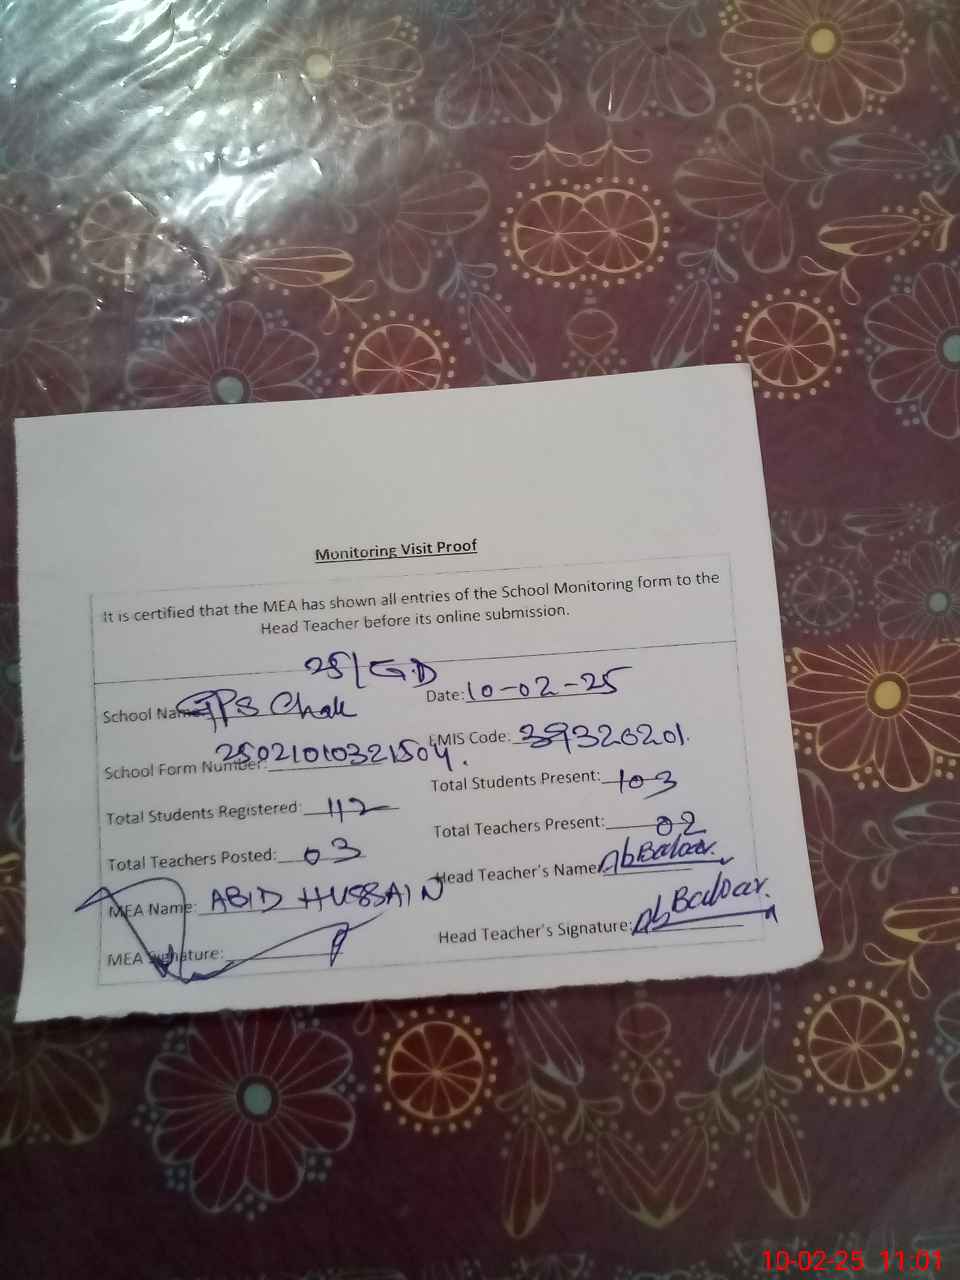 Monitoring Visit Proof
It is certified that the MEA has shown all entries of the School Monitoring form to the
Head Teacher before its online submission.
25/G.D
School Name: GPS Chak Date: 10-02-25
School Form Number: 25021010321504. EMIS Code: 39320201.
Total Students Registered: 112 Total Students Present: 103
Total Teachers Posted: 03 Total Teachers Present: 02
MEA Name: ABID HUSSAIN Head Teacher's Name:
MEA Signature: Head Teacher's Signature:
10-02-25 11:01